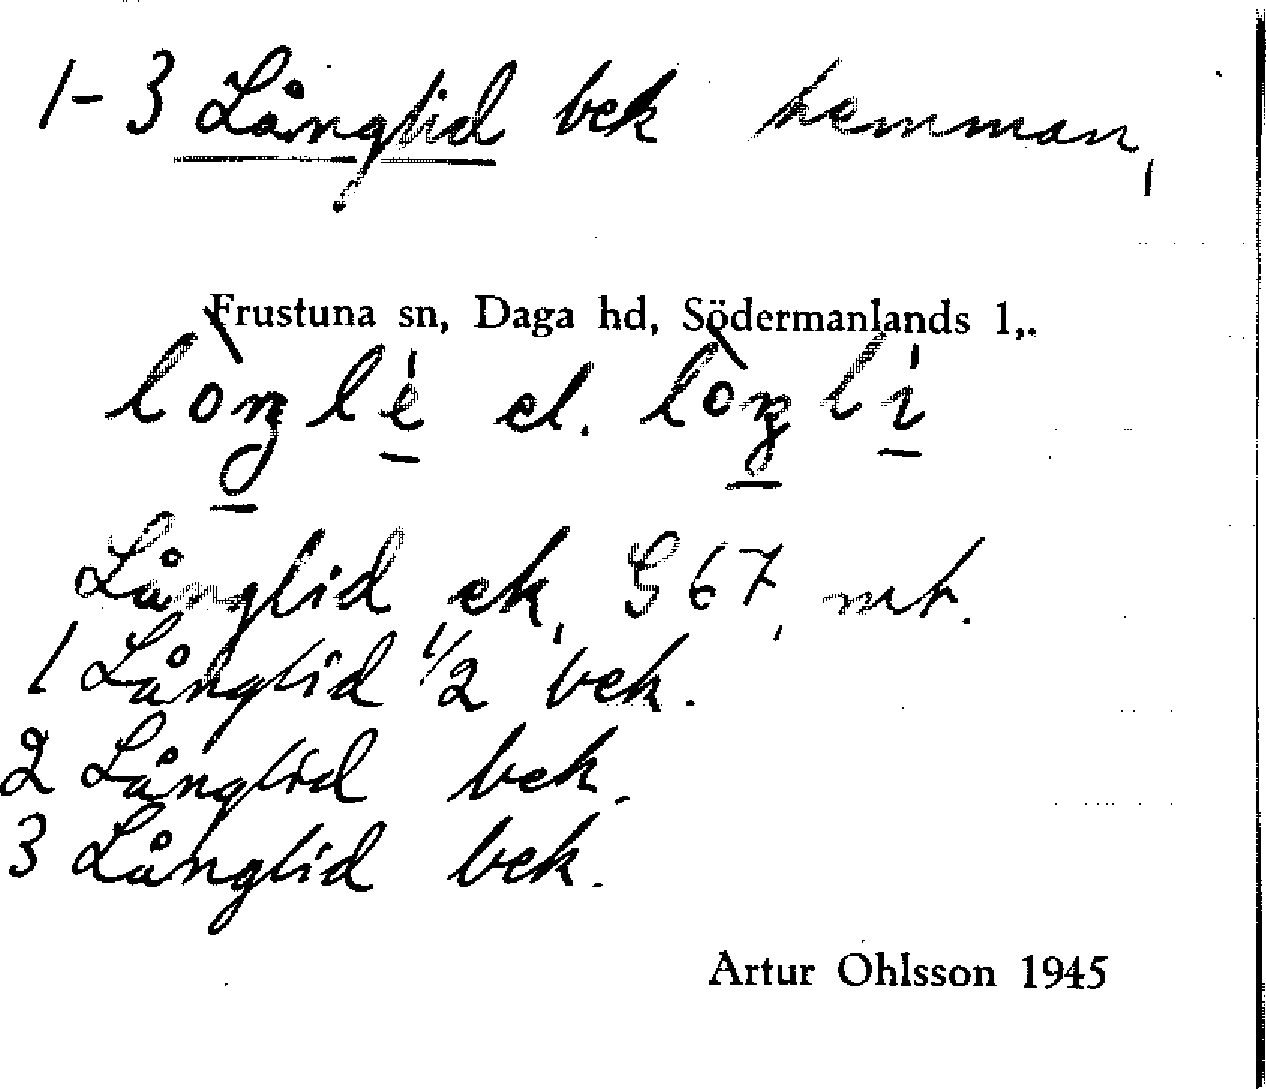 1-3 Långlid bek hemman,
Frustuna sn, Daga hd, Södermanlands l,.
el.
Långlid, ek, G 67, mt.
1 Långlid 1/2 bek.
2 Långlid bek.
3 Långlid bek.
Artur Ohlsson 1945